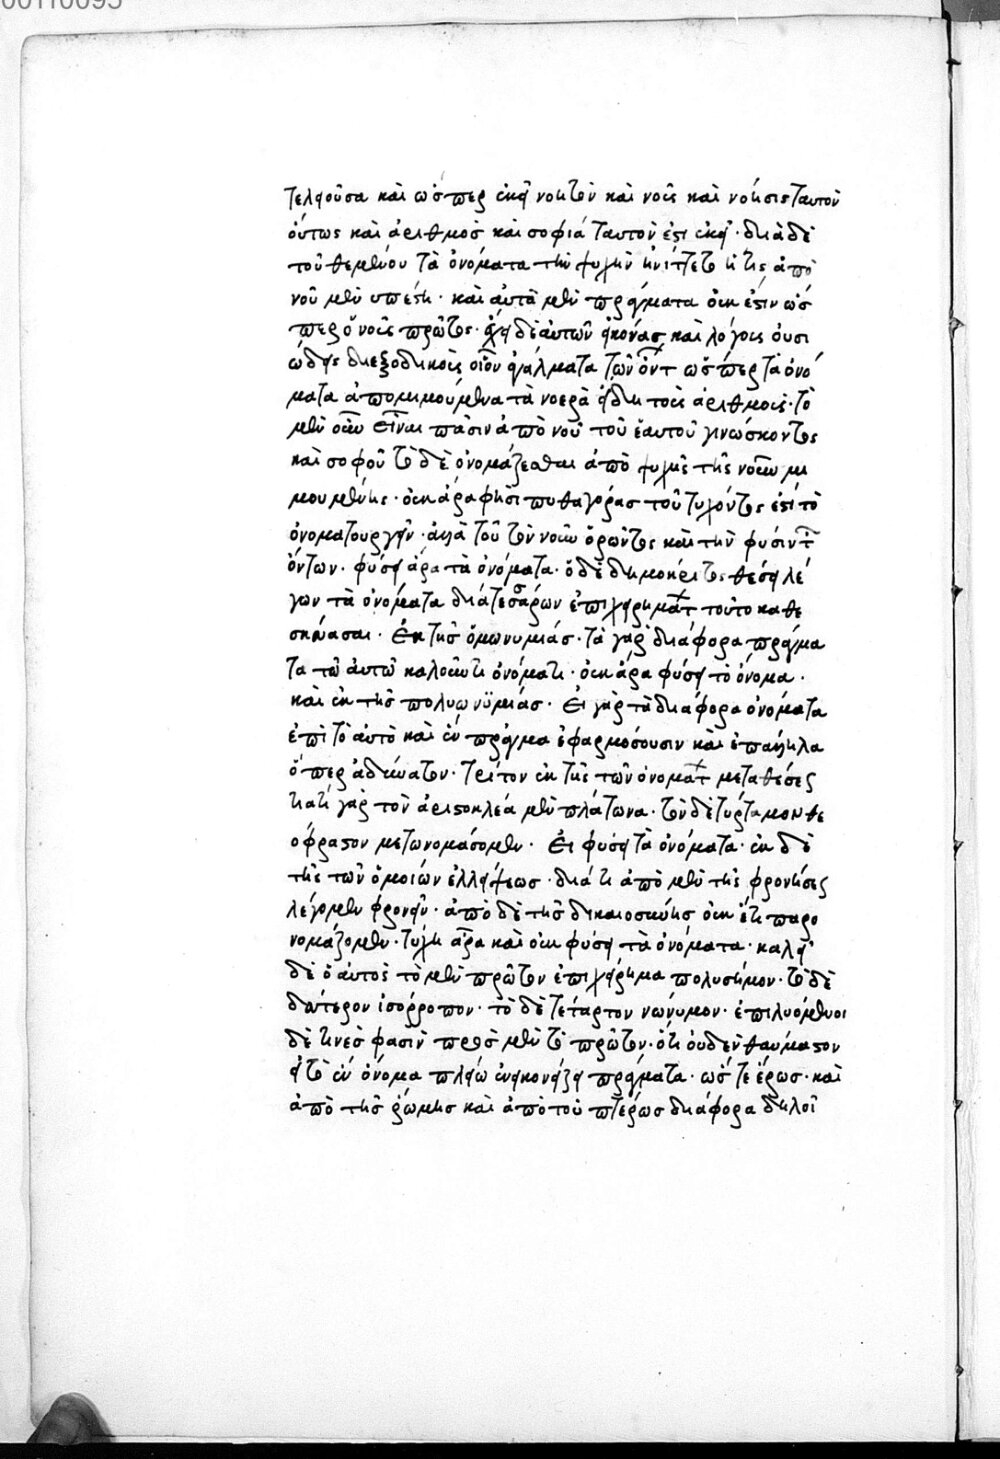 00110095
τελοῦσα καὶ ὥσπερ ἐκεῖ νοητὸν καὶ νοῦς καὶ νόησις ταυτὸν
οὕτως καὶ ἀριθμὸς καὶ σοφία ταυτόν ἐστι ἐκεῖ· διὰ δὲ
τοῦ θεμένου τὰ ὀνόματα τὴν ψυχὴν ᾐνίττετο ἥτις ἀπὸ
νοῦ μὲν ὑπέστη· καὶ αὐτὰ μὲν πράγματα οὐκ ἔστιν ὥσ
περ ὁ νοῦς πρῶτος· ἔχει δὲ αὐτῶν εἰκόνας καὶ λόγους οὐσι
ώδεις διεξοδικοὺς οἷον ἀγάλματα τῶν ὄντ ὥσπερ τὰ ὀνό
ματα ἀπομιμούμενα τὰ νοερὰ εἴδη τοὺς ἀριθμούς· τὸ
μὲν οὖν εἶναι πᾶσιν ἀπὸ νοῦ τοῦ ἑαυτοῦ γινώσκοντος
καὶ σοφοῦ τὸ δὲ ὀνομάζεσθαι ἀπὸ ψυχῆς τῆς νοῦν μι
μουμένης· οὐκ ἄρα φησὶ πυθαγόρας τοῦ τυχόντος ἐστὶ τὸ
ὀνοματουργεῖν· ἀλλὰ τοῦ τὸν νοῦν ὁρῶντος καὶ τὴν φύσιν τ
ὄντων· φύσει ἄρα τὰ ὀνόματα· ὁ δὲ δημόκριτος θέσει λέ
γων τὰ ὀνόματα διὰ τεσσάρων ἐπιχειρημάτ τοῦτο κατε
σκεύασαι· Ἐκ τῆς ὁμωνυμίας· τὰ γὰρ διάφορα πράγμα
τα τῶ αὐτῶ καλοῦντι ὀνόματι· οὐκ ἄρα φύσει τὸ ὄνομα·
καὶ ἐκ τῆς πολυωνϋμίας· Εἰ γὰρ τὰ διάφορα ὀνόματα
ἐπὶ τὸ αὐτὸ καὶ ἓν πρᾶγμα ἐφαρμόσουσιν καὶ ἐπάλληλα
ὅπερ ἀδύνατον· τρίτον ἐκ τῆς τῶν ὀνομάτ μεταθέσεως
διατί γὰρ τὸν ἀριστοκλέα μὲν πλάτωνα· τὸν δὲ τύρταμον θε
όφραστον μετωνομάσομεν· Εἰ φύσει τὰ ὀνόματα· ἐκ δὲ
τῆς τῶν ὁμοίων ἐλλείψεως· διάτι ἀπὸ μὲν τῆς φρονήσεως
λέγομεν φρονεῖν· ἀπὸ δὲ τῆς δικαιοσύνης οὐκ ἔτι παρο
νομάζομεν· τύχη ἄρα καὶ οὐ φύσει τὰ ὀνόματα· καλεῖ
δὲ ὁ αὐτὸς τὸ μὲν πρῶτον ἐπιχείρημα πολύσημον· τὸ δὲ
δεύτερον ἰσόρροπον· τὸ δὲ τέταρτον νώνυμον· ἐπιλυόμενοι
δέ τινές φασὶν πρὸς μὲν τὸ πρῶτον· ὅτι οὐδὲν θαυμαστὸν
εἰ τὸ ἓν ὄνομα πλείω ἐνεικονίζει πράγματα· ὥστε ἔρως· καὶ
ἀπὸ τῆς ῥώμης καὶ ἀπὸ τοῦ πτέρως διάφορα δηλοῖ